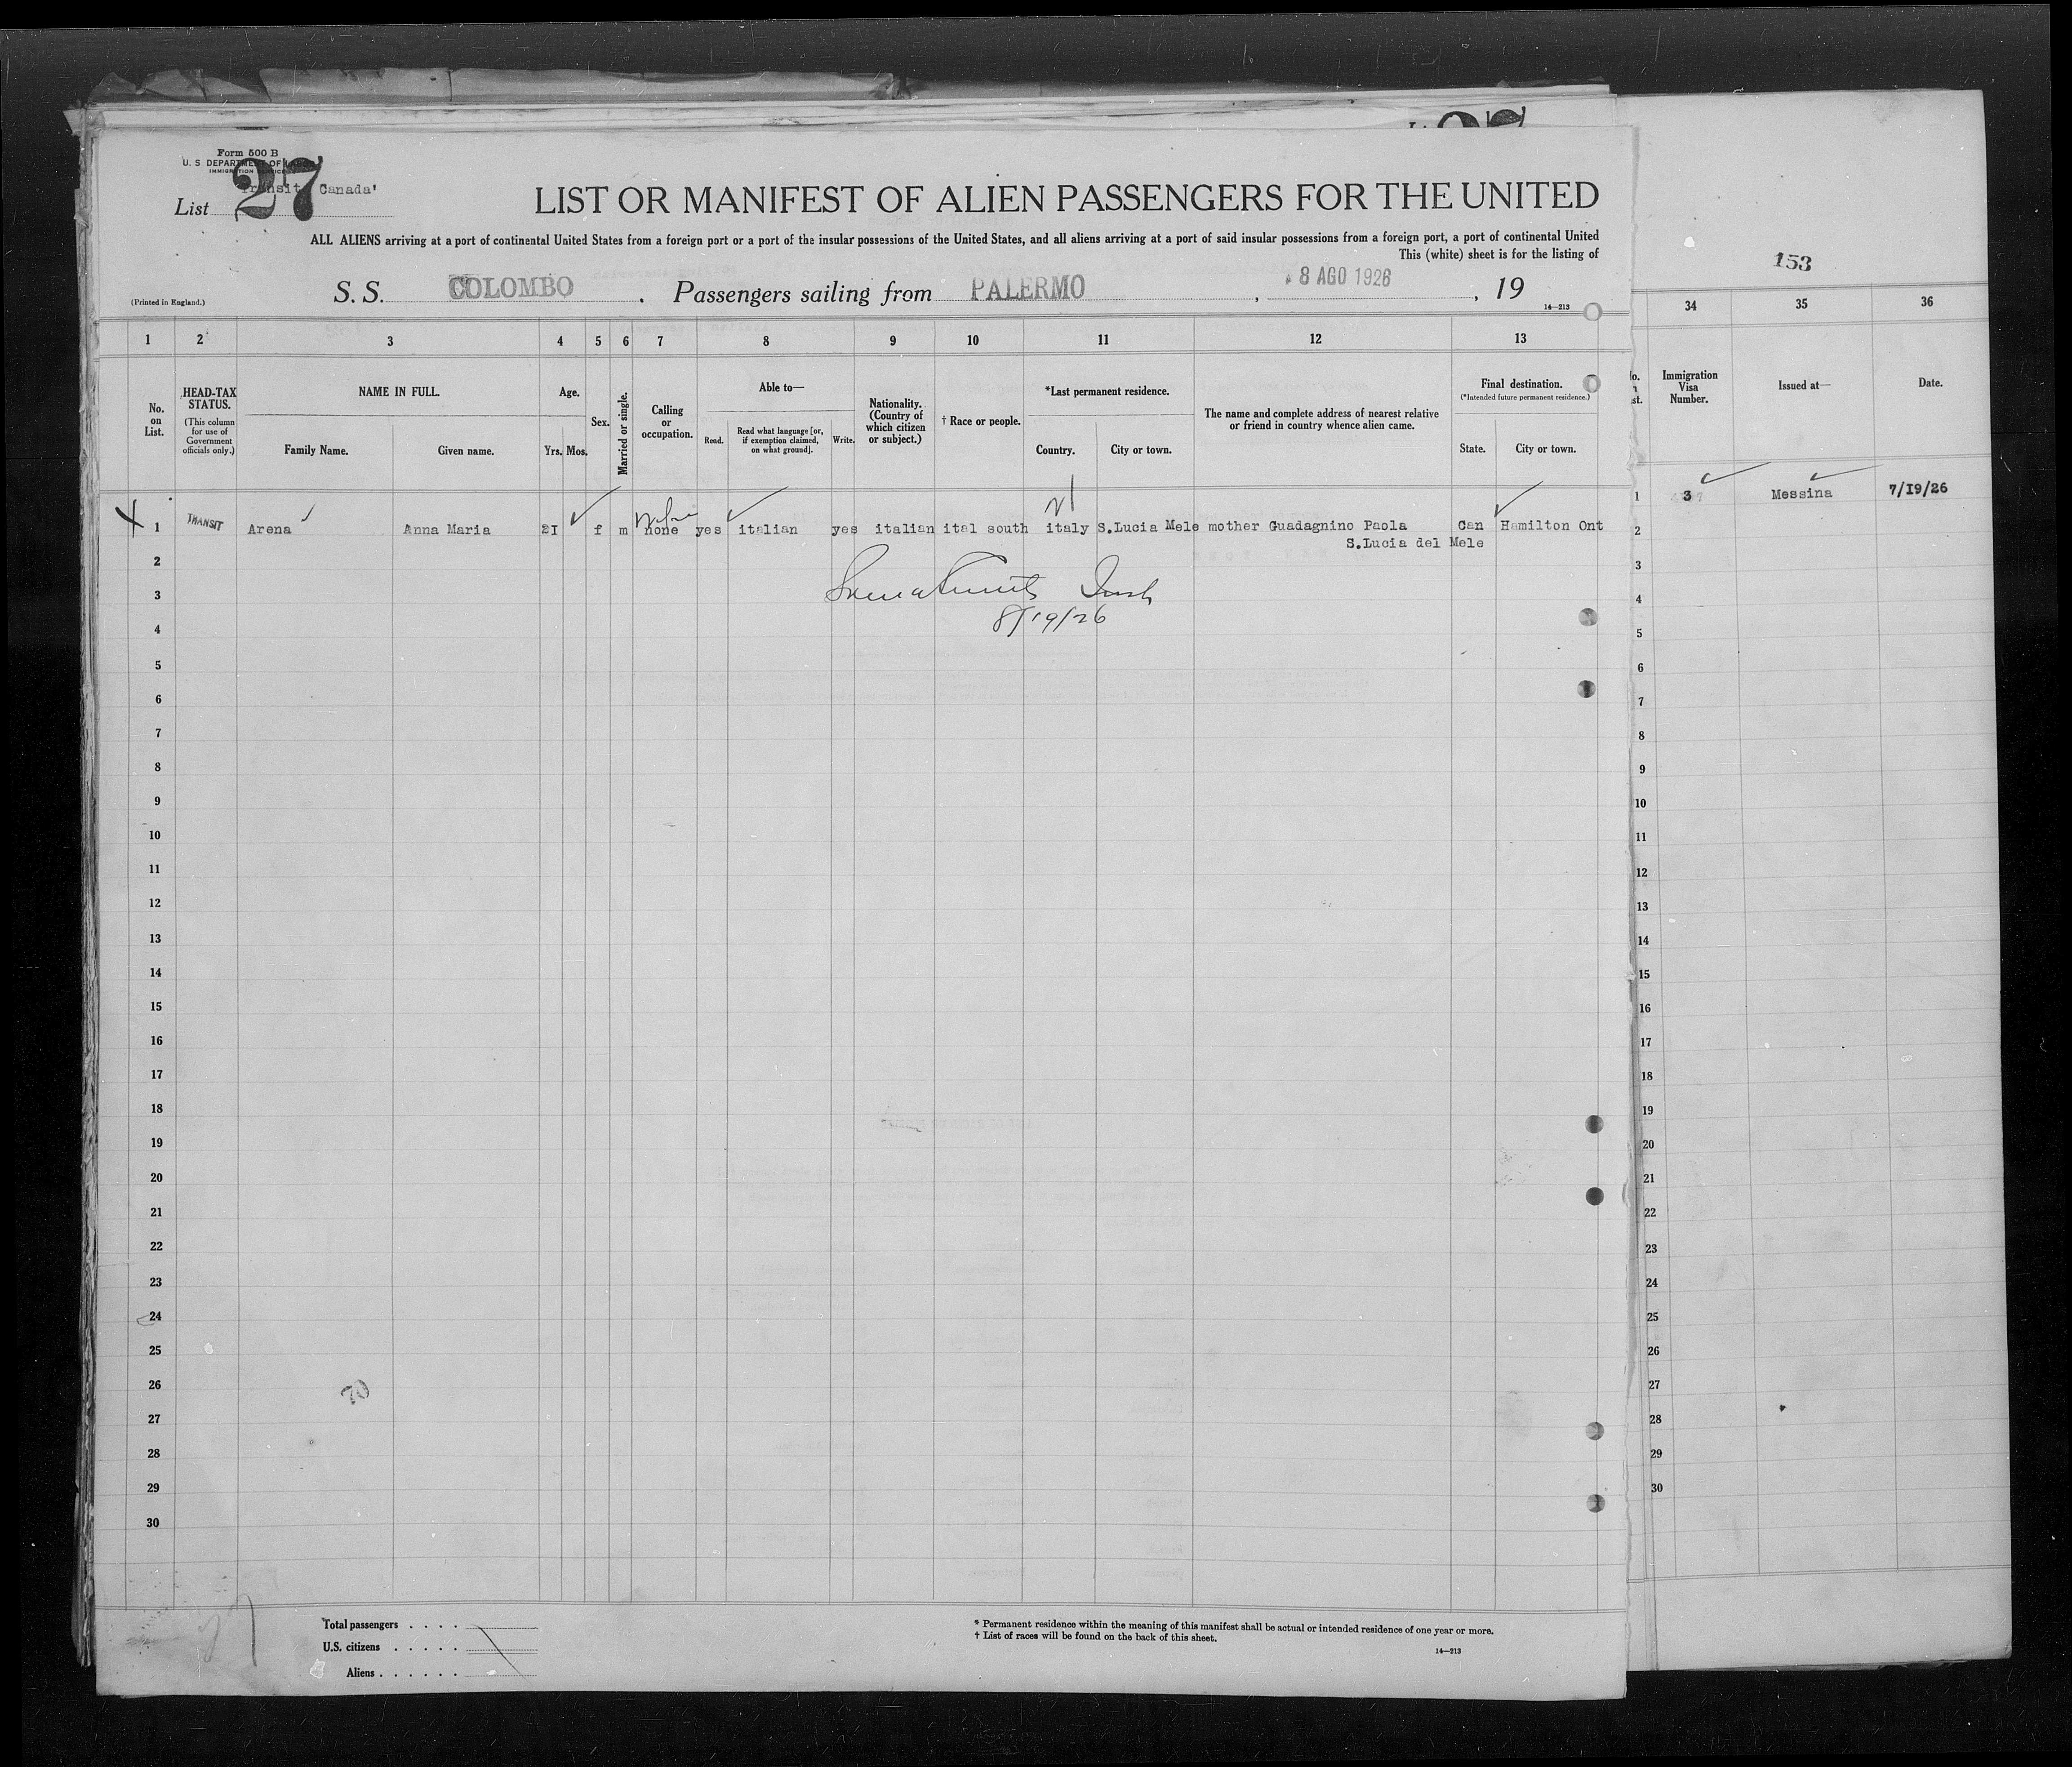 Form 500 B
U. S DEPARTMENT OF
IMMIGRATION
Transit Canada'
List 27
LIST OR MANIFEST OF ALIEN PASSENGERS FOR THE UNITED
ALL ALIENS arriving at a port of continental United States from a foreign port or a port of the insular possessions of the United States, and all aliens arriving at a port of said insular possessions from a foreign port, a port of continental United
This (white) sheet is for the listing of
(Printed in England.) S. S. COLOMBO . Passengers sailing from PALERMO , 8 AGO 1926 , 19
14—213
153
1 2 3 4 5 6 7 8 9 10 11 12 13
34 35 36
No. on List.
HEAD-TAX STATUS. (This column for use of Government officials only.)
NAME IN FULL.
Family Name. Given name.
Age.
Yrs. Mos.
Sex.
Married or single.
Calling or occupation.
Able to—
Read. Read what language [or, if exemption claimed, on what ground]. Write.
Nationality. (Country of which citizen or subject.)
† Race or people.
*Last permanent residence.
Country. City or town.
The name and complete address of nearest relative or friend in country whence alien came.
Final destination.
(*Intended future permanent residence.)
State. City or town.
Immigration Visa Number.
Issued at—
Date.
1 TRANSIT Arena Anna Maria 21 f m none yes italian yes italian ital south italy S.Lucia Mele mother Guadagnino Paola Can Hamilton Ont
S.Lucia del Mele
3 Messina 7/19/26
8/19/26
2
3
4
5
6
7
8
9
10
11
12
13
14
15
16
17
18
19
20
21
22
23
24
25
26
27
28
29
30
1
2
3
4
5
6
7
8
9
10
11
12
13
14
15
16
17
18
19
20
21
22
23
24
25
26
27
28
29
30
Total passengers . . . .
U.S. citizens . . . . .
Aliens . . . . . .
* Permanent residence within the meaning of this manifest shall be actual or intended residence of one year or more.
† List of races will be found on the back of this sheet.
14—213